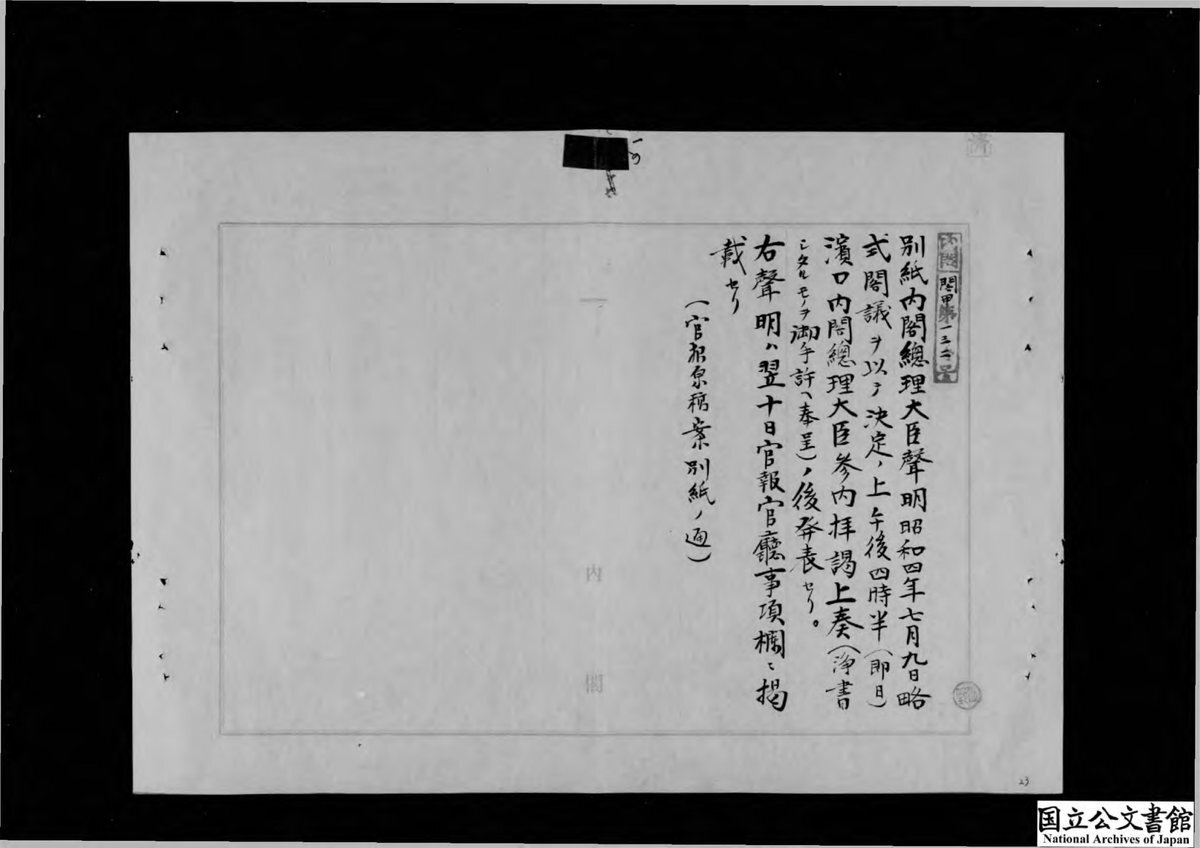 内閣
閣甲第一三六号
別紙内閣總理大臣聲明昭和四年七月九日略
式閣議ヲ以テ決定ノ上午後四時半（即日）
濱口内閣總理大臣参内拝謁上奏（浄書
シタルモノヲ御手許ヘ奉呈）ノ後発表セリ。
右聲明ハ翌十日官報官廳事項欄ニ掲
載セリ
（官報原稿案別紙ノ通）
一
内閣
23
国立公文書館
National Archives of Japan